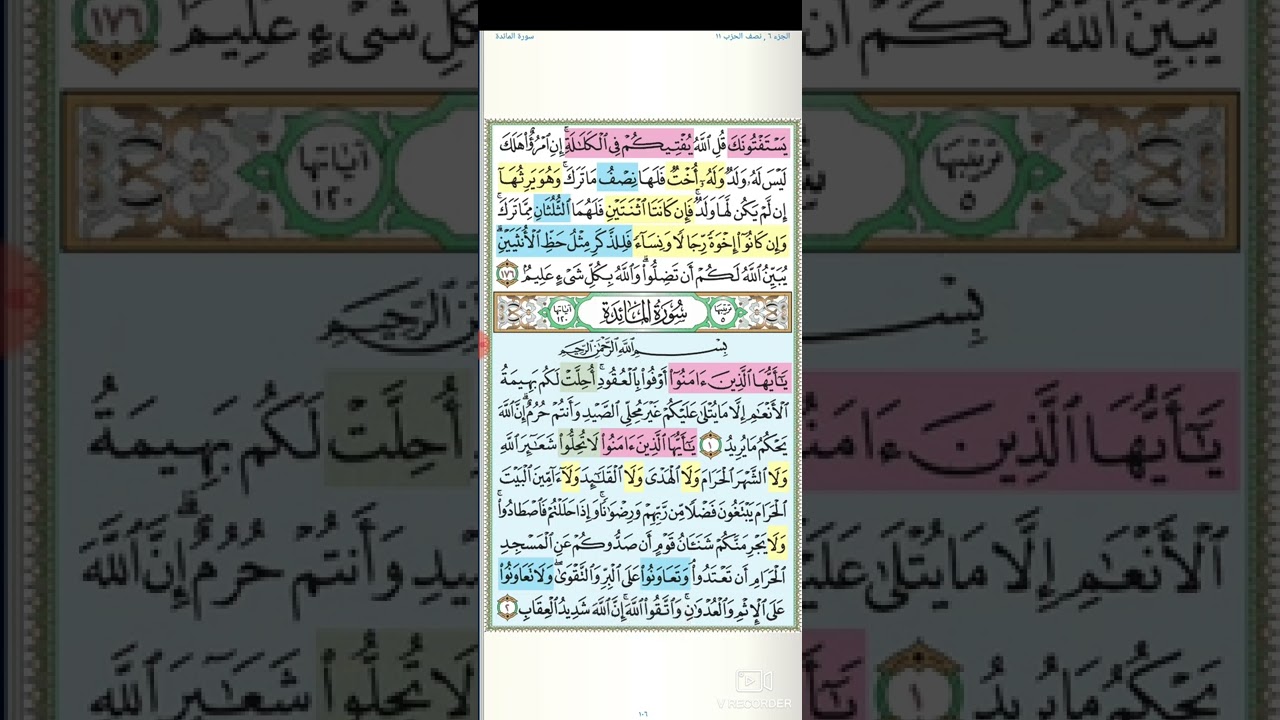 الجزء ٦ , نصف الحزب ١١
سورة المائدة
يَسْتَفْتُونَكَ قُلِ ٱللَّهُ يُفْتِيكُمْ فِى ٱلْكَلَٰلَةِ ۚ إِنِ ٱمْرُؤٌا۟ هَلَكَ
لَيْسَ لَهُۥ وَلَدٌ وَلَهُۥٓ أُخْتٌ فَلَهَا نِصْفُ مَا تَرَكَ ۚ وَهُوَ يَرِثُهَآ
إِن لَّمْ يَكُن لَّهَا وَلَدٌ ۚ فَإِن كَانَتَا ٱثْنَتَيْنِ فَلَهُمَا ٱلثُّلُثَانِ مِمَّا تَرَكَ ۚ
وَإِن كَانُوٓا۟ إِخْوَةً رِّجَالًا وَنِسَآءً فَلِلذَّكَرِ مِثْلُ حَظِّ ٱلْأُنثَيَيْنِ ۗ
يُبَيِّنُ ٱللَّهُ لَكُمْ أَن تَضِلُّوا۟ ۗ وَٱللَّهُ بِكُلِّ شَىْءٍ عَلِيمٌۢ ١٧٦
ترتيبها ٥
سُورَةُ المَائِدَةِ
آياتها ١٢٠
بِسْمِ ٱللَّهِ ٱلرَّحْمَٰنِ ٱلرَّحِيمِ
يَٰٓأَيُّهَا ٱلَّذِينَ ءَامَنُوٓا۟ أَوْفُوا۟ بِٱلْعُقُودِ ۚ أُحِلَّتْ لَكُم بَهِيمَةُ
ٱلْأَنْعَٰمِ إِلَّا مَا يُتْلَىٰ عَلَيْكُمْ غَيْرَ مُحِلِّى ٱلصَّيْدِ وَأَنتُمْ حُرُمٌ ۗ إِنَّ ٱللَّهَ
يَحْكُمُ مَا يُرِيدُ ١ يَٰٓأَيُّهَا ٱلَّذِينَ ءَامَنُوا۟ لَا تُحِلُّوا۟ شَعَٰٓئِرَ ٱللَّهِ
وَلَا ٱلشَّهْرَ ٱلْحَرَامَ وَلَا ٱلْهَدْىَ وَلَا ٱلْقَلَٰٓئِدَ وَلَآ ءَآمِّينَ ٱلْبَيْتَ
ٱلْحَرَامَ يَبْتَغُونَ فَضْلًا مِّن رَّبِّهِمْ وَرِضْوَٰنًا ۚ وَإِذَا حَلَلْتُمْ فَٱصْطَادُوا۟ ۚ
وَلَا يَجْرِمَنَّكُمْ شَنَـَٔانُ قَوْمٍ أَن صَدُّوكُمْ عَنِ ٱلْمَسْجِدِ
ٱلْحَرَامِ أَن تَعْتَدُوا۟ ۘ وَتَعَاوَنُوا۟ عَلَى ٱلْبِرِّ وَٱلتَّقْوَىٰ ۖ وَلَا تَعَاوَنُوا۟
عَلَى ٱلْإِثْمِ وَٱلْعُدْوَٰنِ ۚ وَٱتَّقُوا۟ ٱللَّهَ ۖ إِنَّ ٱللَّهَ شَدِيدُ ٱلْعِقَابِ ٢
V RECORDER
١٠٦